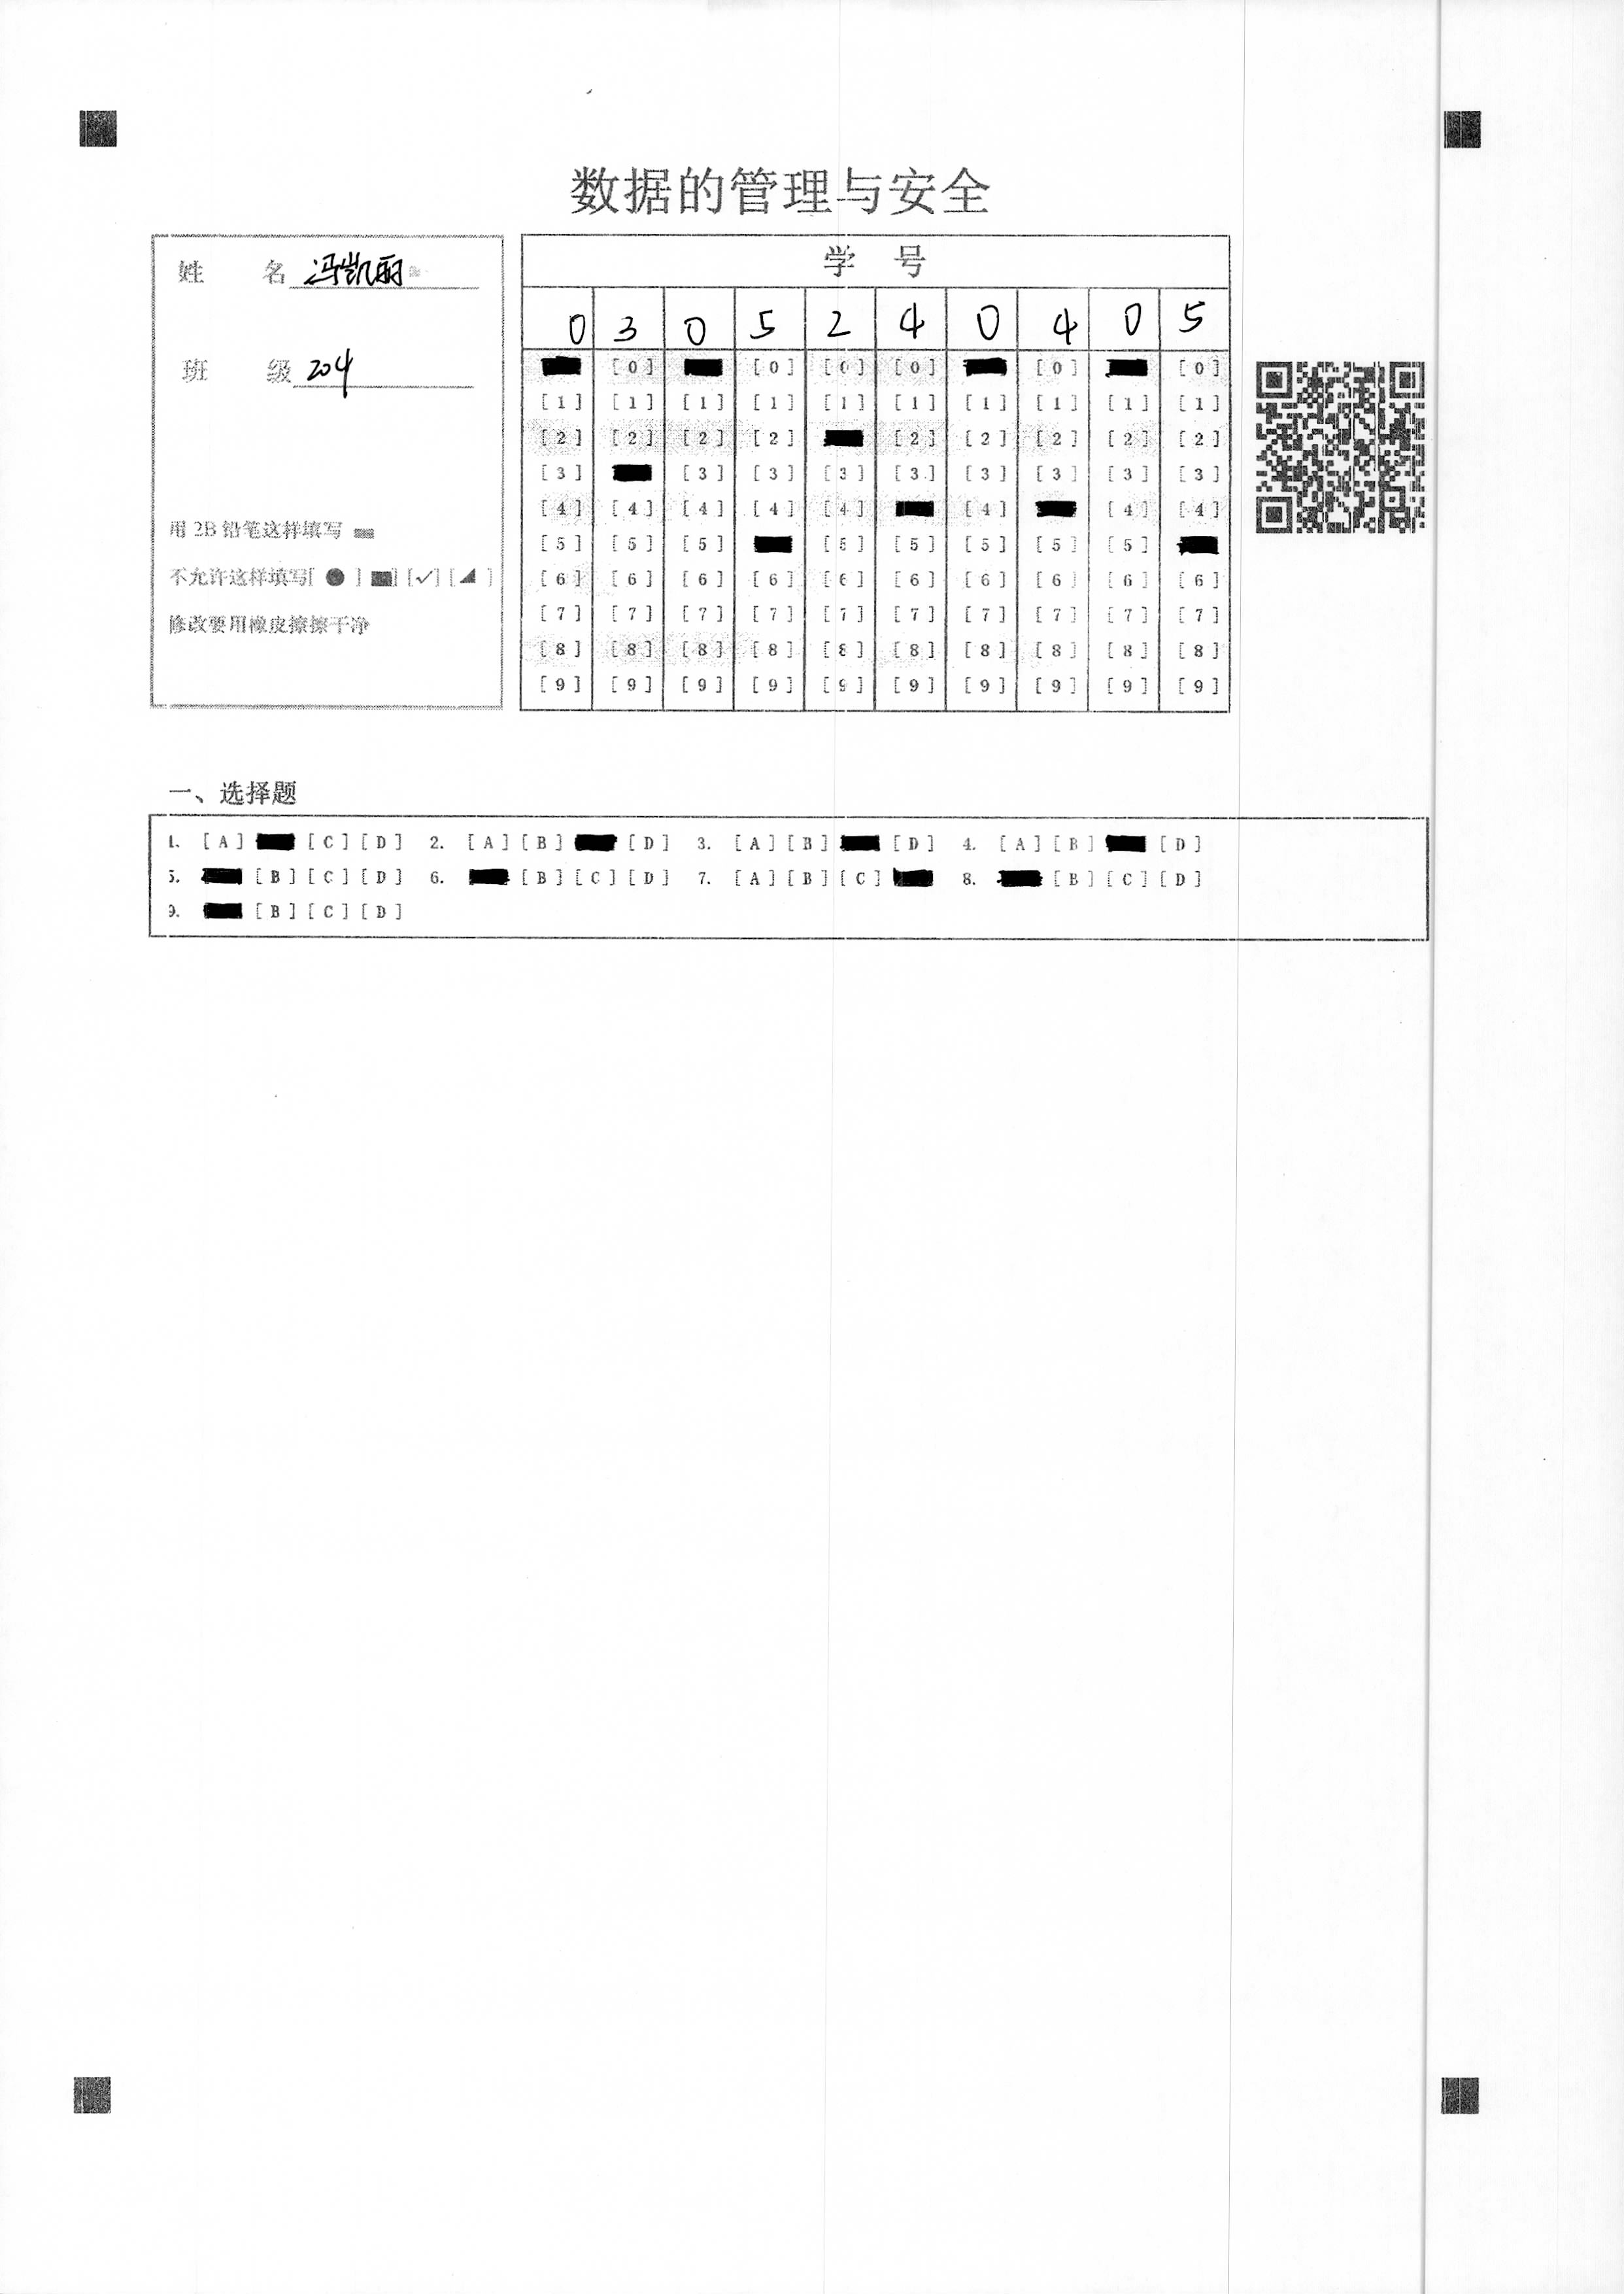 数据的管理与安全
姓 名 冯凯丽
班 级 204
用 2B 铅笔这样填写
不允许这样填写[ ● ] ■] [✓] [◢ ]
修改要用橡皮擦擦干净
学 号
0 3 0 5 2 4 0 4 0 5
[0] [0] [0] [0] [0] [0]
[1] [1] [1] [1] [1] [1] [1] [1] [1] [1]
[2] [2] [2] [2] [2] [2] [2] [2] [2]
[3] [3] [3] [3] [3] [3] [3] [3] [3]
[4] [4] [4] [4] [4] [4] [4] [4]
[5] [5] [5] [5] [5] [5] [5] [5]
[6] [6] [6] [6] [6] [6] [6] [6] [6] [6]
[7] [7] [7] [7] [7] [7] [7] [7] [7] [7]
[8] [8] [8] [8] [8] [8] [8] [8] [8] [8]
[9] [9] [9] [9] [9] [9] [9] [9] [9] [9]
一、选择题
1. [A] [C] [D] 2. [A] [B] [D] 3. [A] [B] [D] 4. [A] [B] [D]
5. [B] [C] [D] 6. [B] [C] [D] 7. [A] [B] [C] 8. [B] [C] [D]
9. [B] [C] [D]